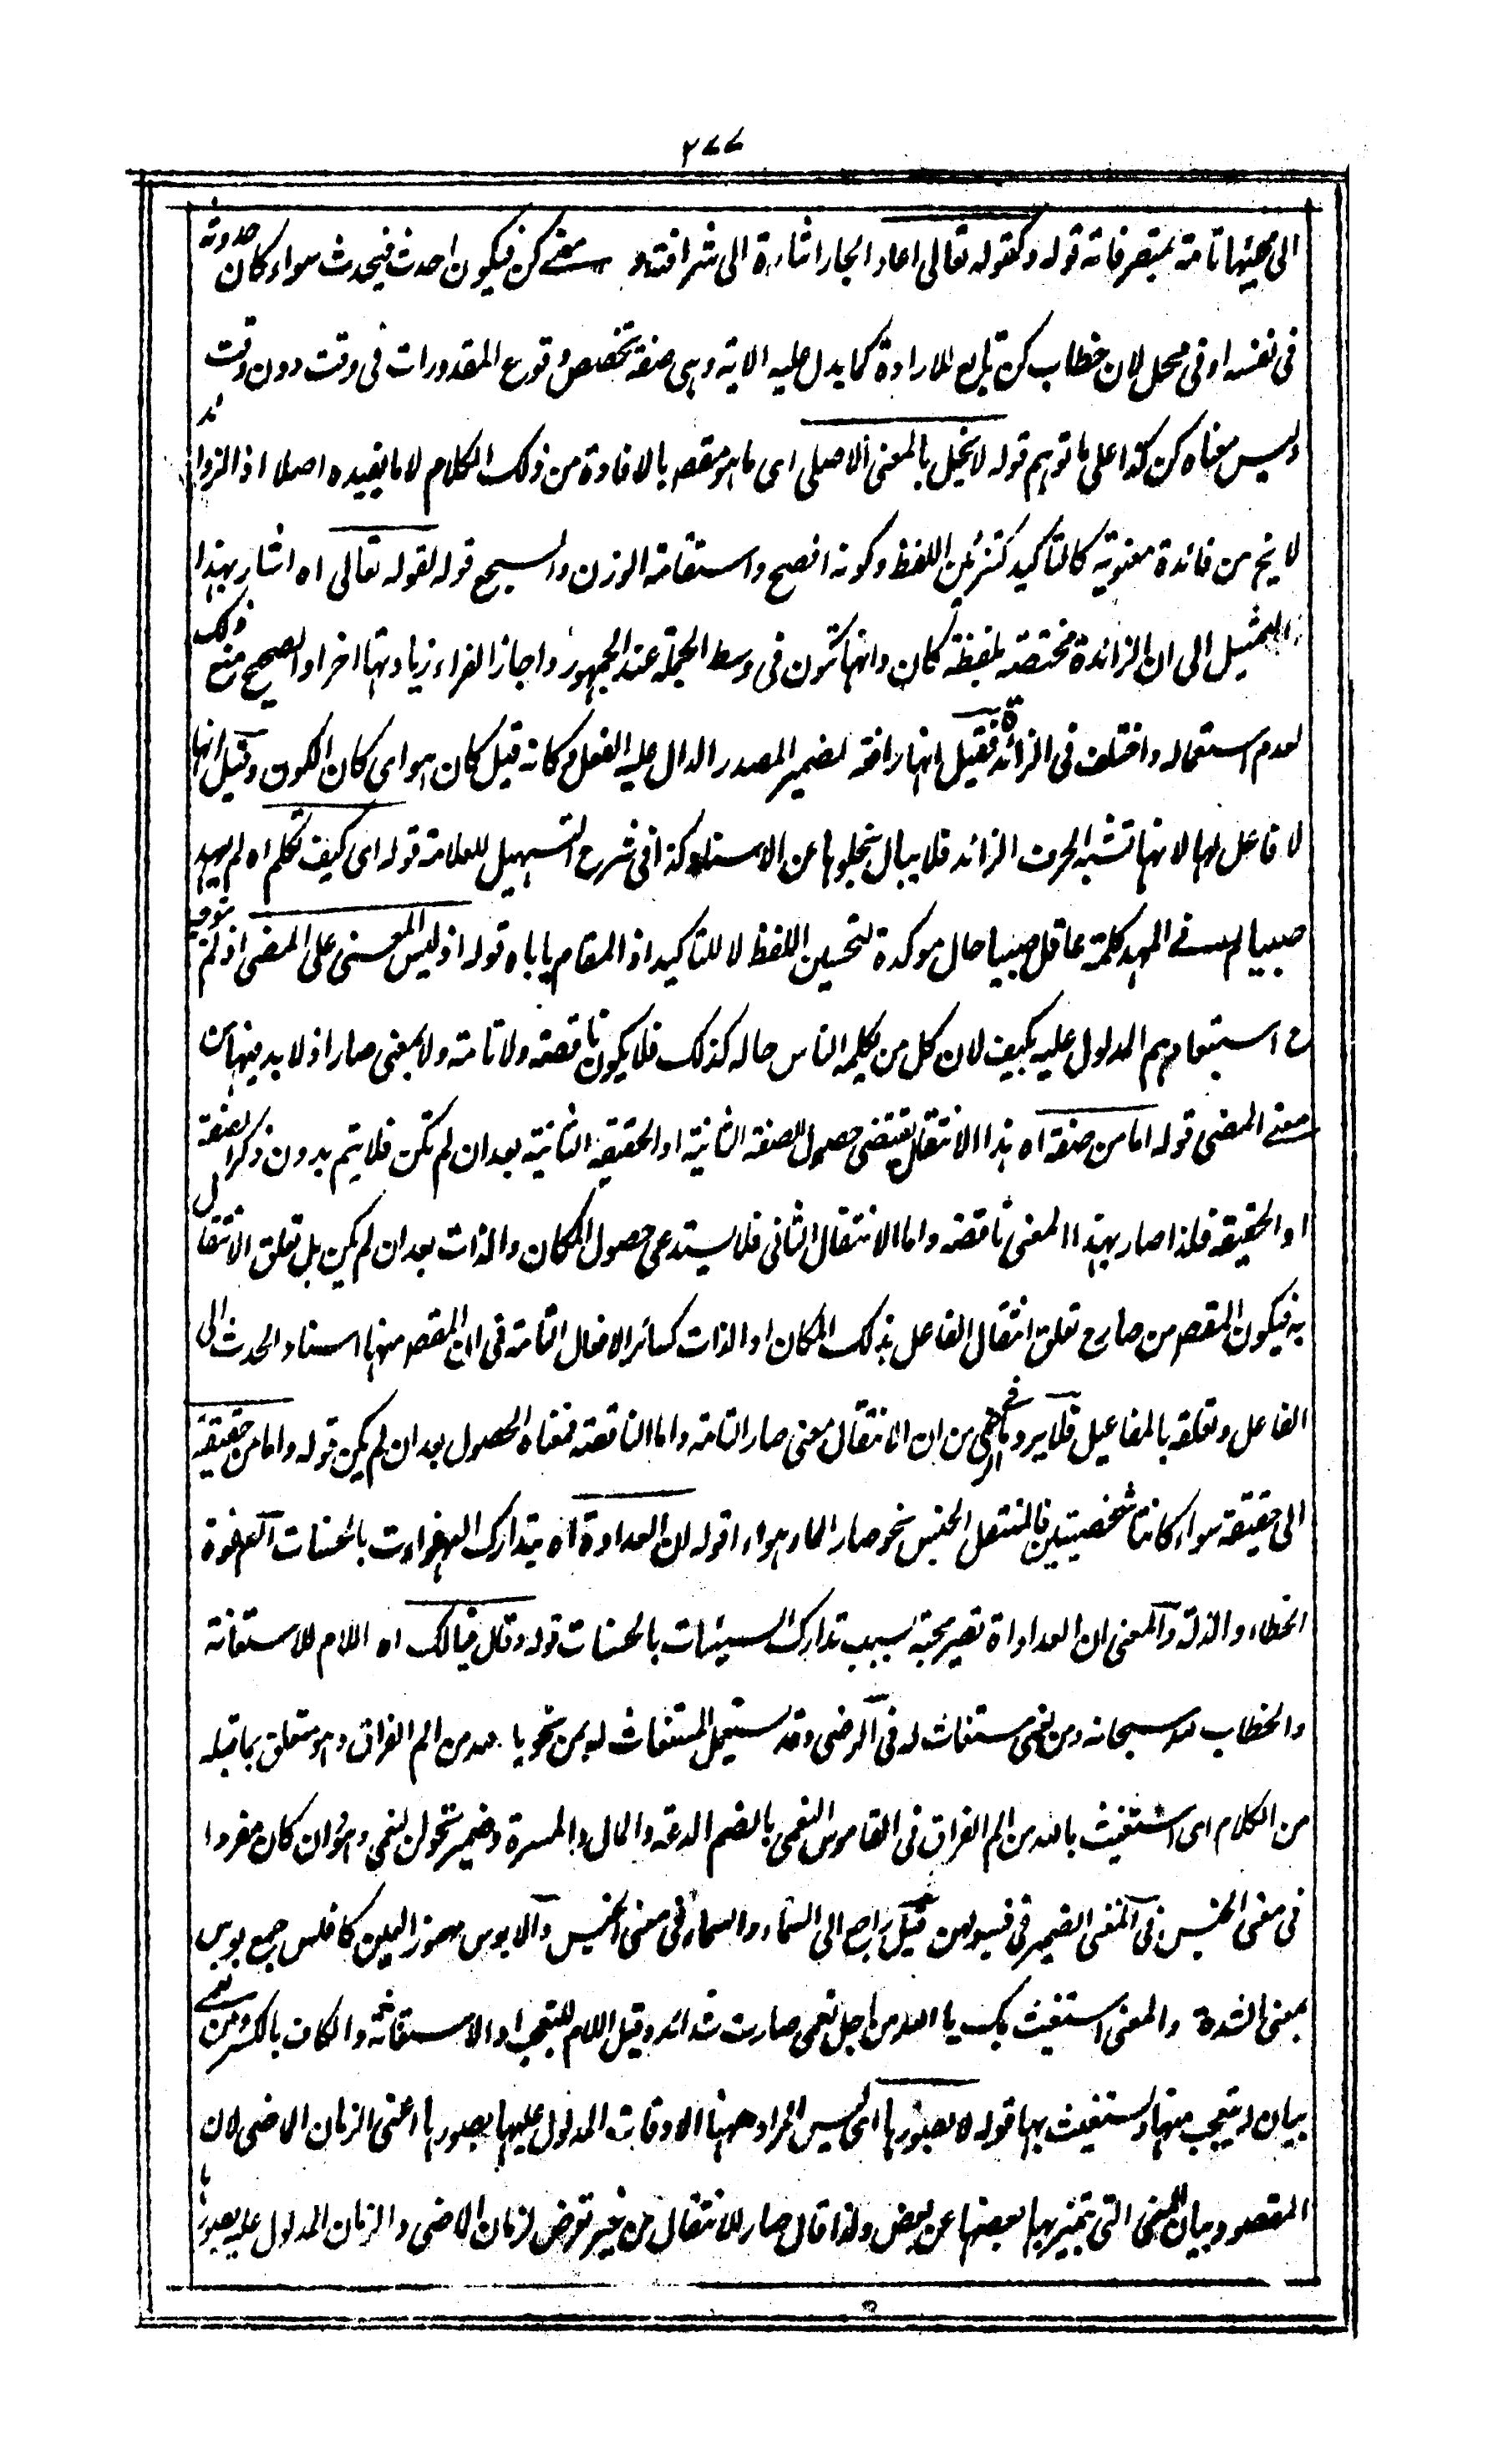 ٢٧٧
الى مجيئها تامة بمتصرفاته قوله وكقوله تعالى اعاد الجار اشارة الى شرافته و معنى كن فيكون احدث فيحدث سواء كان حدوثه
فى نفسه او فى محل لان خطاب كن تابع للارادة كما يدل عليه الاية وهى صفة تخصص وقوع المقدورات فى وقت دون وقت
وليس معناه كن كذا على ما توهم قوله لا يخل بالمعنى الاصلى اى ما هو مقصد بالافادة من ذلك الكلام لا ما يفيده اصلا اذ الزوائد
لا يخ من فائدة معنوية كالتاكيد كتزئين اللفظ وكونه افصح واستقامة الوزن والسجع قوله لقوله تعالى اه اشار بهذا
التمثيل الى ان الزائدة مختصة بلفظة كان وانها تكون فى وسط الجملة عند الجمهور واجاز الفراء زيادتها اخرا والصحيح منع ذلك
لعدم استعماله واختلف فى الزائدة فقيل انها رافعة لضمير المصدر الدال عليه الفعل وكانه قيل كان هو اى كان الكون وقيل انها
لا فاعل لها لانها تشبه الحرف الزائد فلا يبال بخلوها عن الاسناد كذا فى شرح التسهيل للعلامة قوله اى كيف تكلم اه لم يعهد
صبيا فى المهد كلمة عاقل صبيا حال موكدة لتحسين اللفظ لا للتاكيد اذ المقام ياباه قوله اذ ليس المعنى على المضى اذ لم
ح استبعادهم المدلول عليه بكيف لان كل من يكلمه الناس حاله كذلك فلا يكون ناقصة ولا تامة ولا بمعنى صار اذ لا بد فيها من
معنى المضى قوله اما من صفة اه هذا الانتقال يقتضى حصول الصفة الثانية او الحقيقة الثانية بعد ان لم تكن فلا يتم بدون ذكر الصفة
او الحقيقة فلذا صار بهذا المعنى ناقصة واما الانتقال الثانى فلا يستدعى حصول المكان والذات بعد ان لم يكن بل تعلق الانتقال
به فيكون المقصد من صار ح تعلق انتقال الفاعل بذلك المكان او الذات كسائر الافعال التامة فى ان المقصد منها اسناد الحدث الى
الفاعل وتعلقه بالمفاعيل فلا يرد ما فى الرضى من ان الانتقال معنى صار التامة واما الناقصة فمعناه الحصول بعد ان لم يكن قوله واما من حقيقة
الى حقيقة سواء كانتا شخصيتين فالمنتقل الجنس نحو صار الماء هواء قوله ان العداوة اه يتدارك الهفوات بالحسنات الهفوة
الخطاء والزلة والمعنى ان العداوة تصير محبة بسبب تدارك السيئات بالحسنات قوله وقال فيالك اه اللام للاستغاثة
والخطاب لله سبحانه ومن نعمى مستغاث له فى الرضى وقد يستعمل المستغاث له بمن نحو يا لله من الم الفراق وهو متعلق بما قبله
من الكلام اى استغيث بالله من الم الفراق فى القاموس النعمى بالضم الدعة والمال والمسرة وضمير تحولن لنعمى وهو وان كان مفردا
فى معنى الجنس فى المغنى الضمير فى فسوهن قيل راجع الى السماء والسماء فى معنى الجنس والابوس مهموز العين كافلس جمع بوس
بمعنى الشدة والمعنى استغيث بك يا الله من اجل نعمى صارت شدائد وقيل اللام للتعجب او الاستغاثة والكاف بالكسر ومن نعمى
بيان له يتعجب منها ويستغيث بها قوله لا بصدورها اى ليس المراد ههنا الاوقات المدلول عليها بصدورها اعنى الزمان الماضى لان
المقصود بيان المعنى التى يتميز بها بعضها عن بعض ولذا قال صار للانتقال من غير تعرض لزمان الماضى والزمان المدلول عليه بصدورها